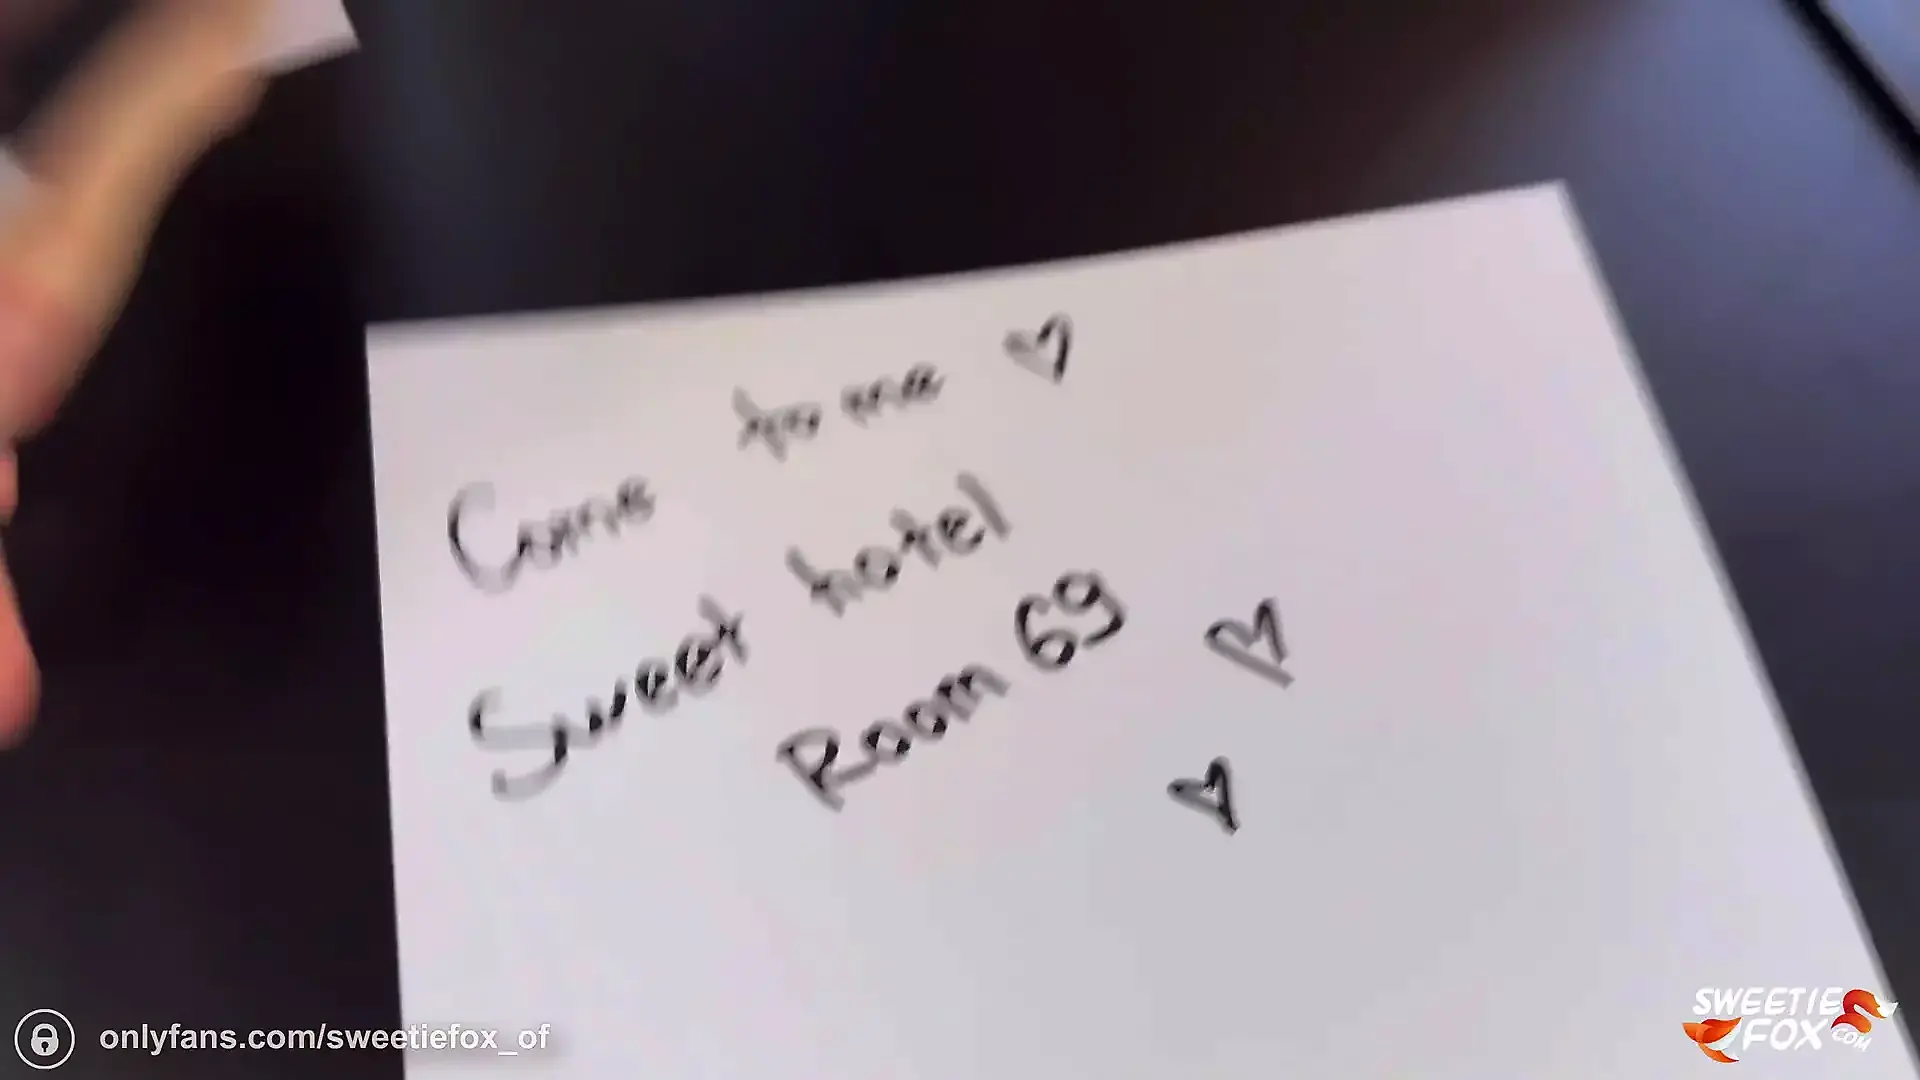 Come to me ♡
Sweet hotel
Room 69 ♡
♡
onlyfans.com/sweetiefox_of
SWEETIE
FOX.COM